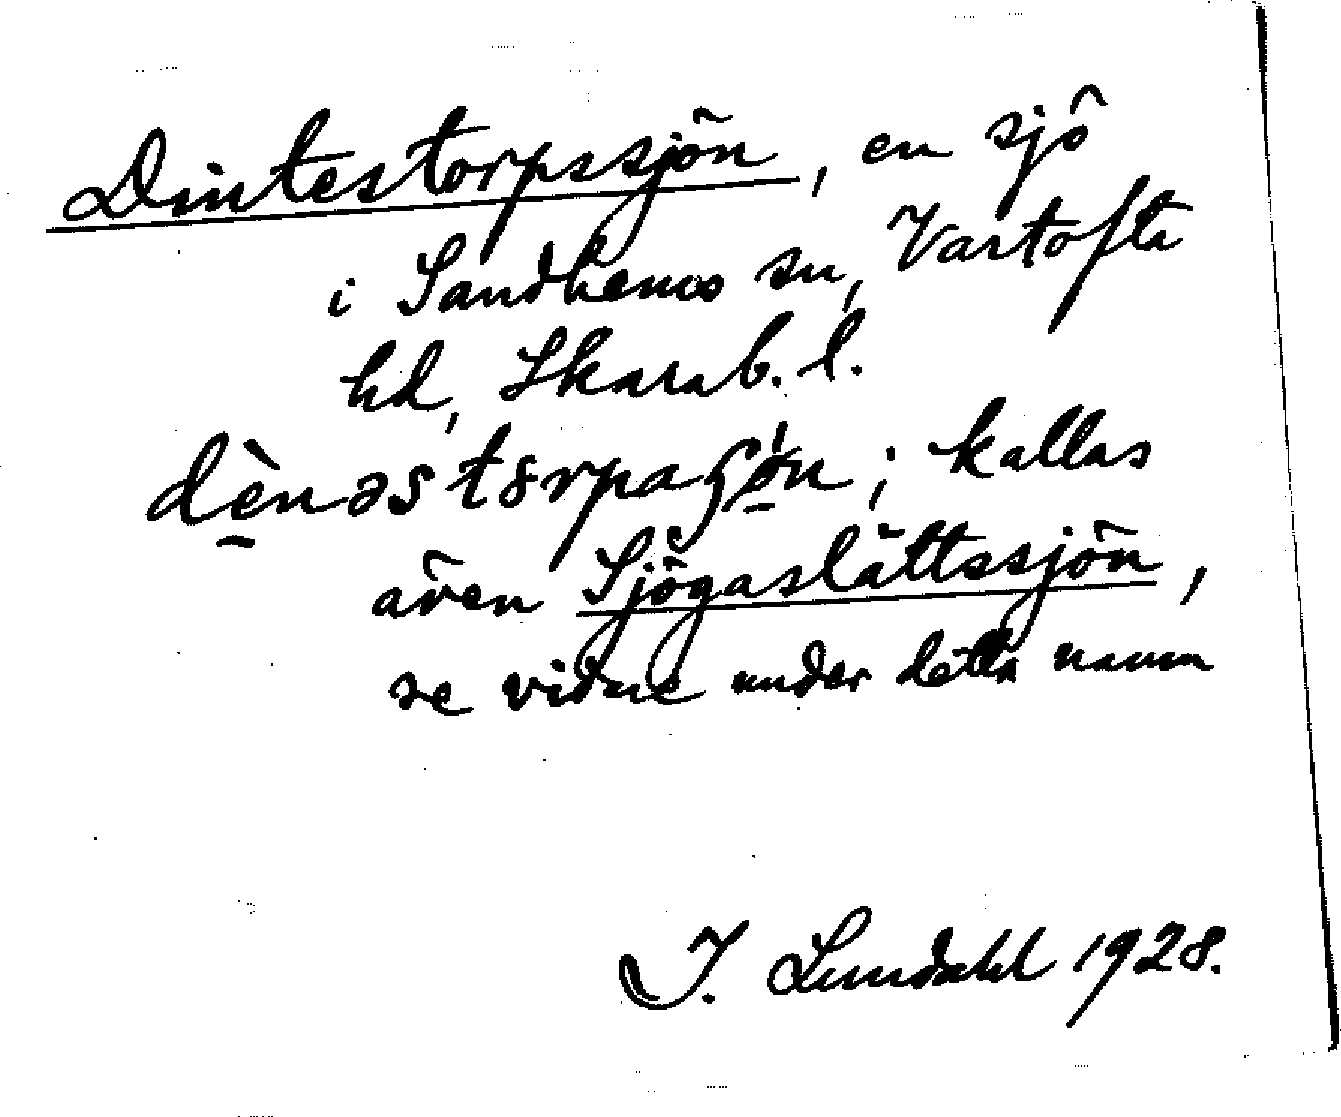 Dintestorpssjön, en sjö
i Sandhems sn, Vartofta
hd, Skarab. l.
även Sjögaslättssjön,
se vidare under detta namn
I. Lundahl 1928.